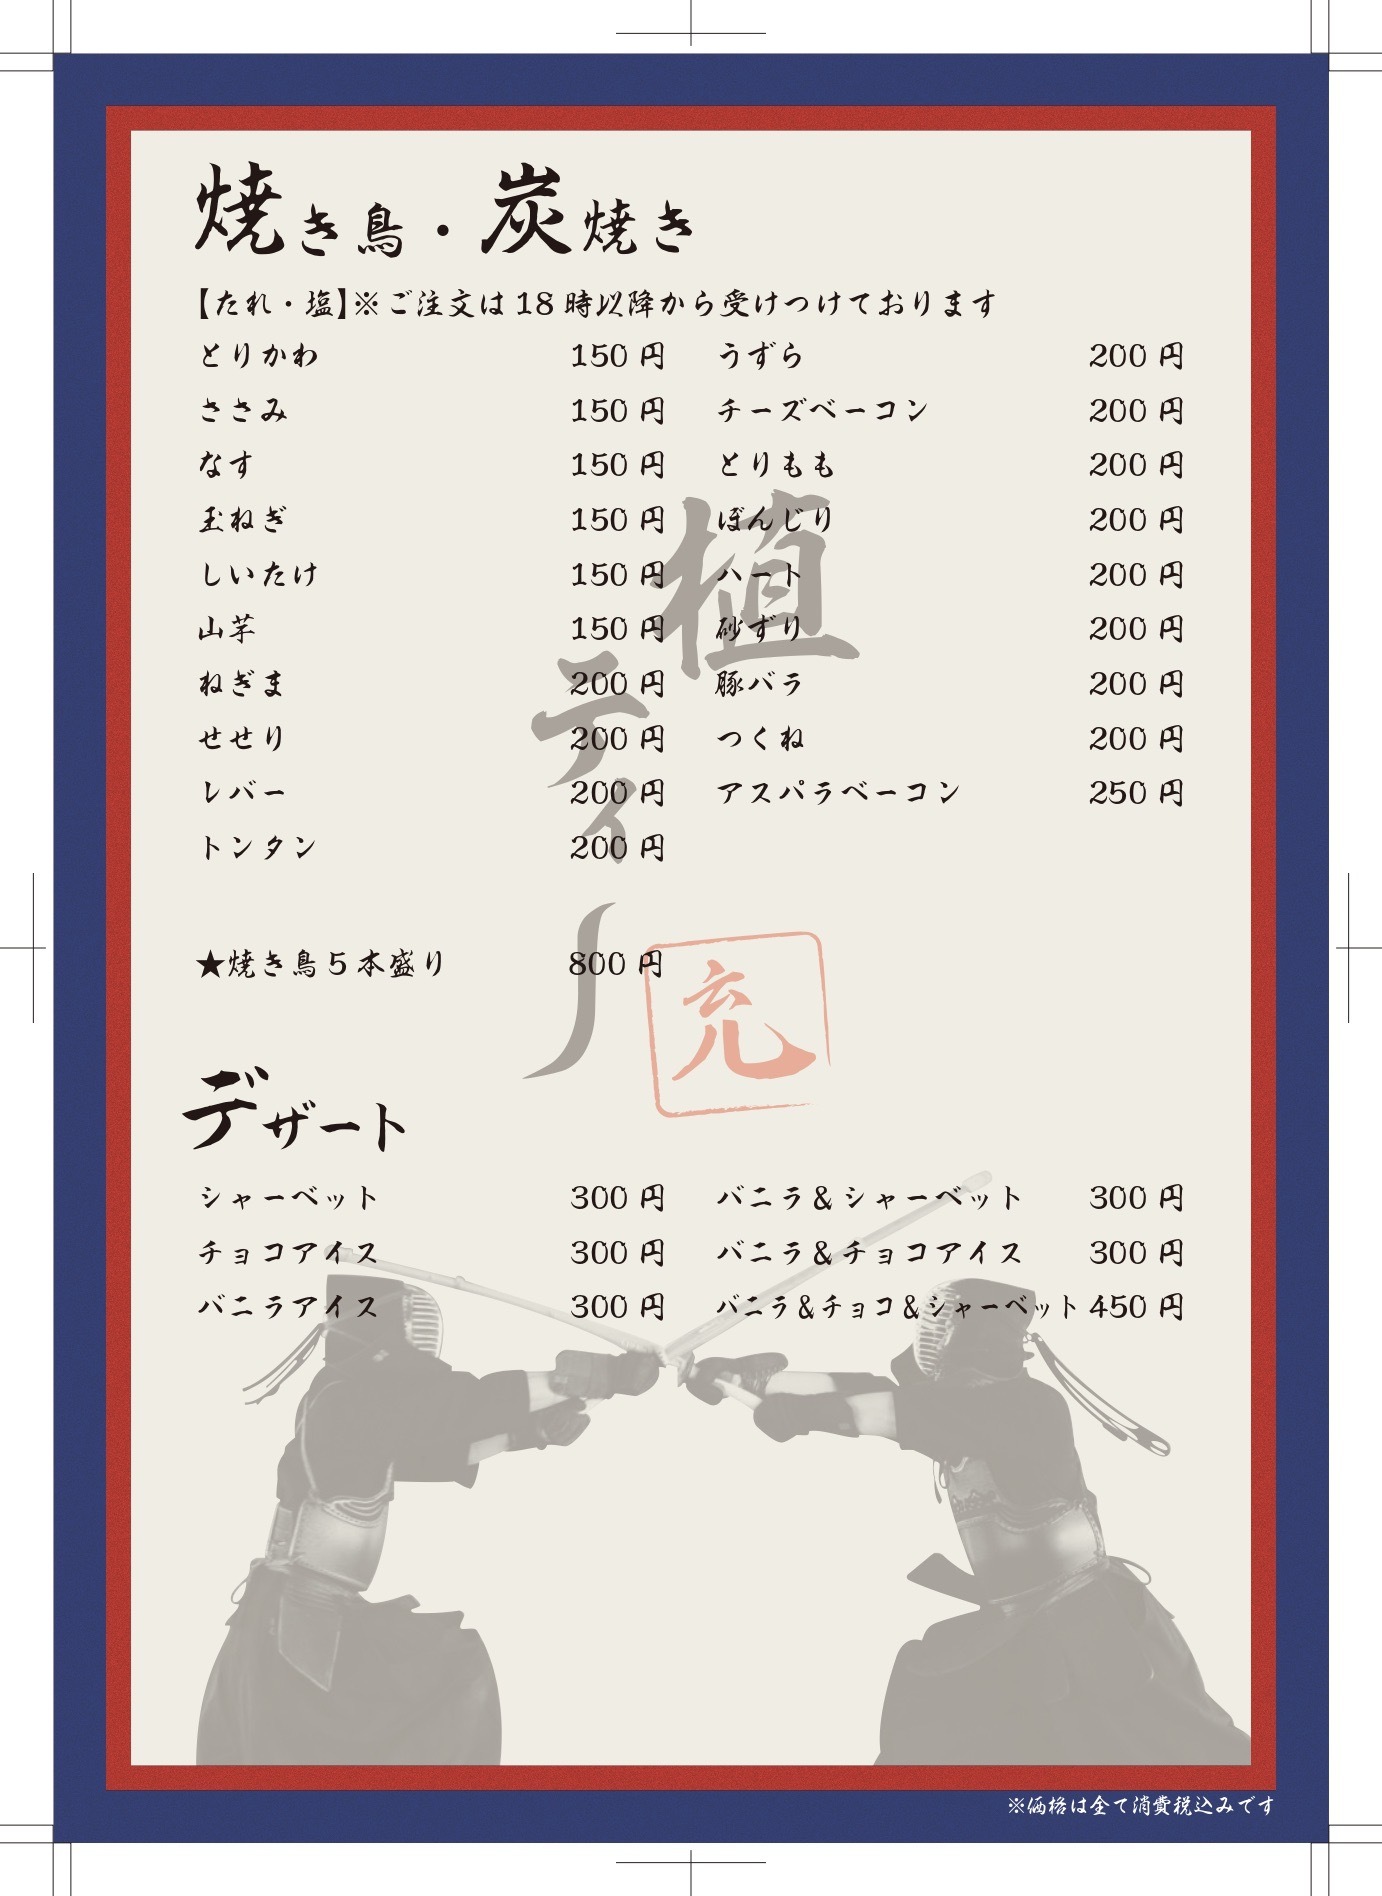 焼き鳥・炭焼き
【たれ・塩】※ご注文は18時以降から受けつけております
とりかわ 150円
ささみ 150円
なす 150円
玉ねぎ 150円
しいたけ 150円
山芋 150円
ねぎま 200円
せせり 200円
レバー 200円
トンタン 200円
うずら 200円
チーズベーコン 200円
とりもも 200円
ぼんじり 200円
ハート 200円
砂ずり 200円
豚バラ 200円
つくね 200円
アスパラベーコン 250円
★焼き鳥5本盛り 800円
植ティー
充
デザート
シャーベット 300円
チョコアイス 300円
バニラアイス 300円
バニラ&シャーベット 300円
バニラ&チョコアイス 300円
バニラ&チョコ&シャーベット 450円
※価格は全て消費税込みです